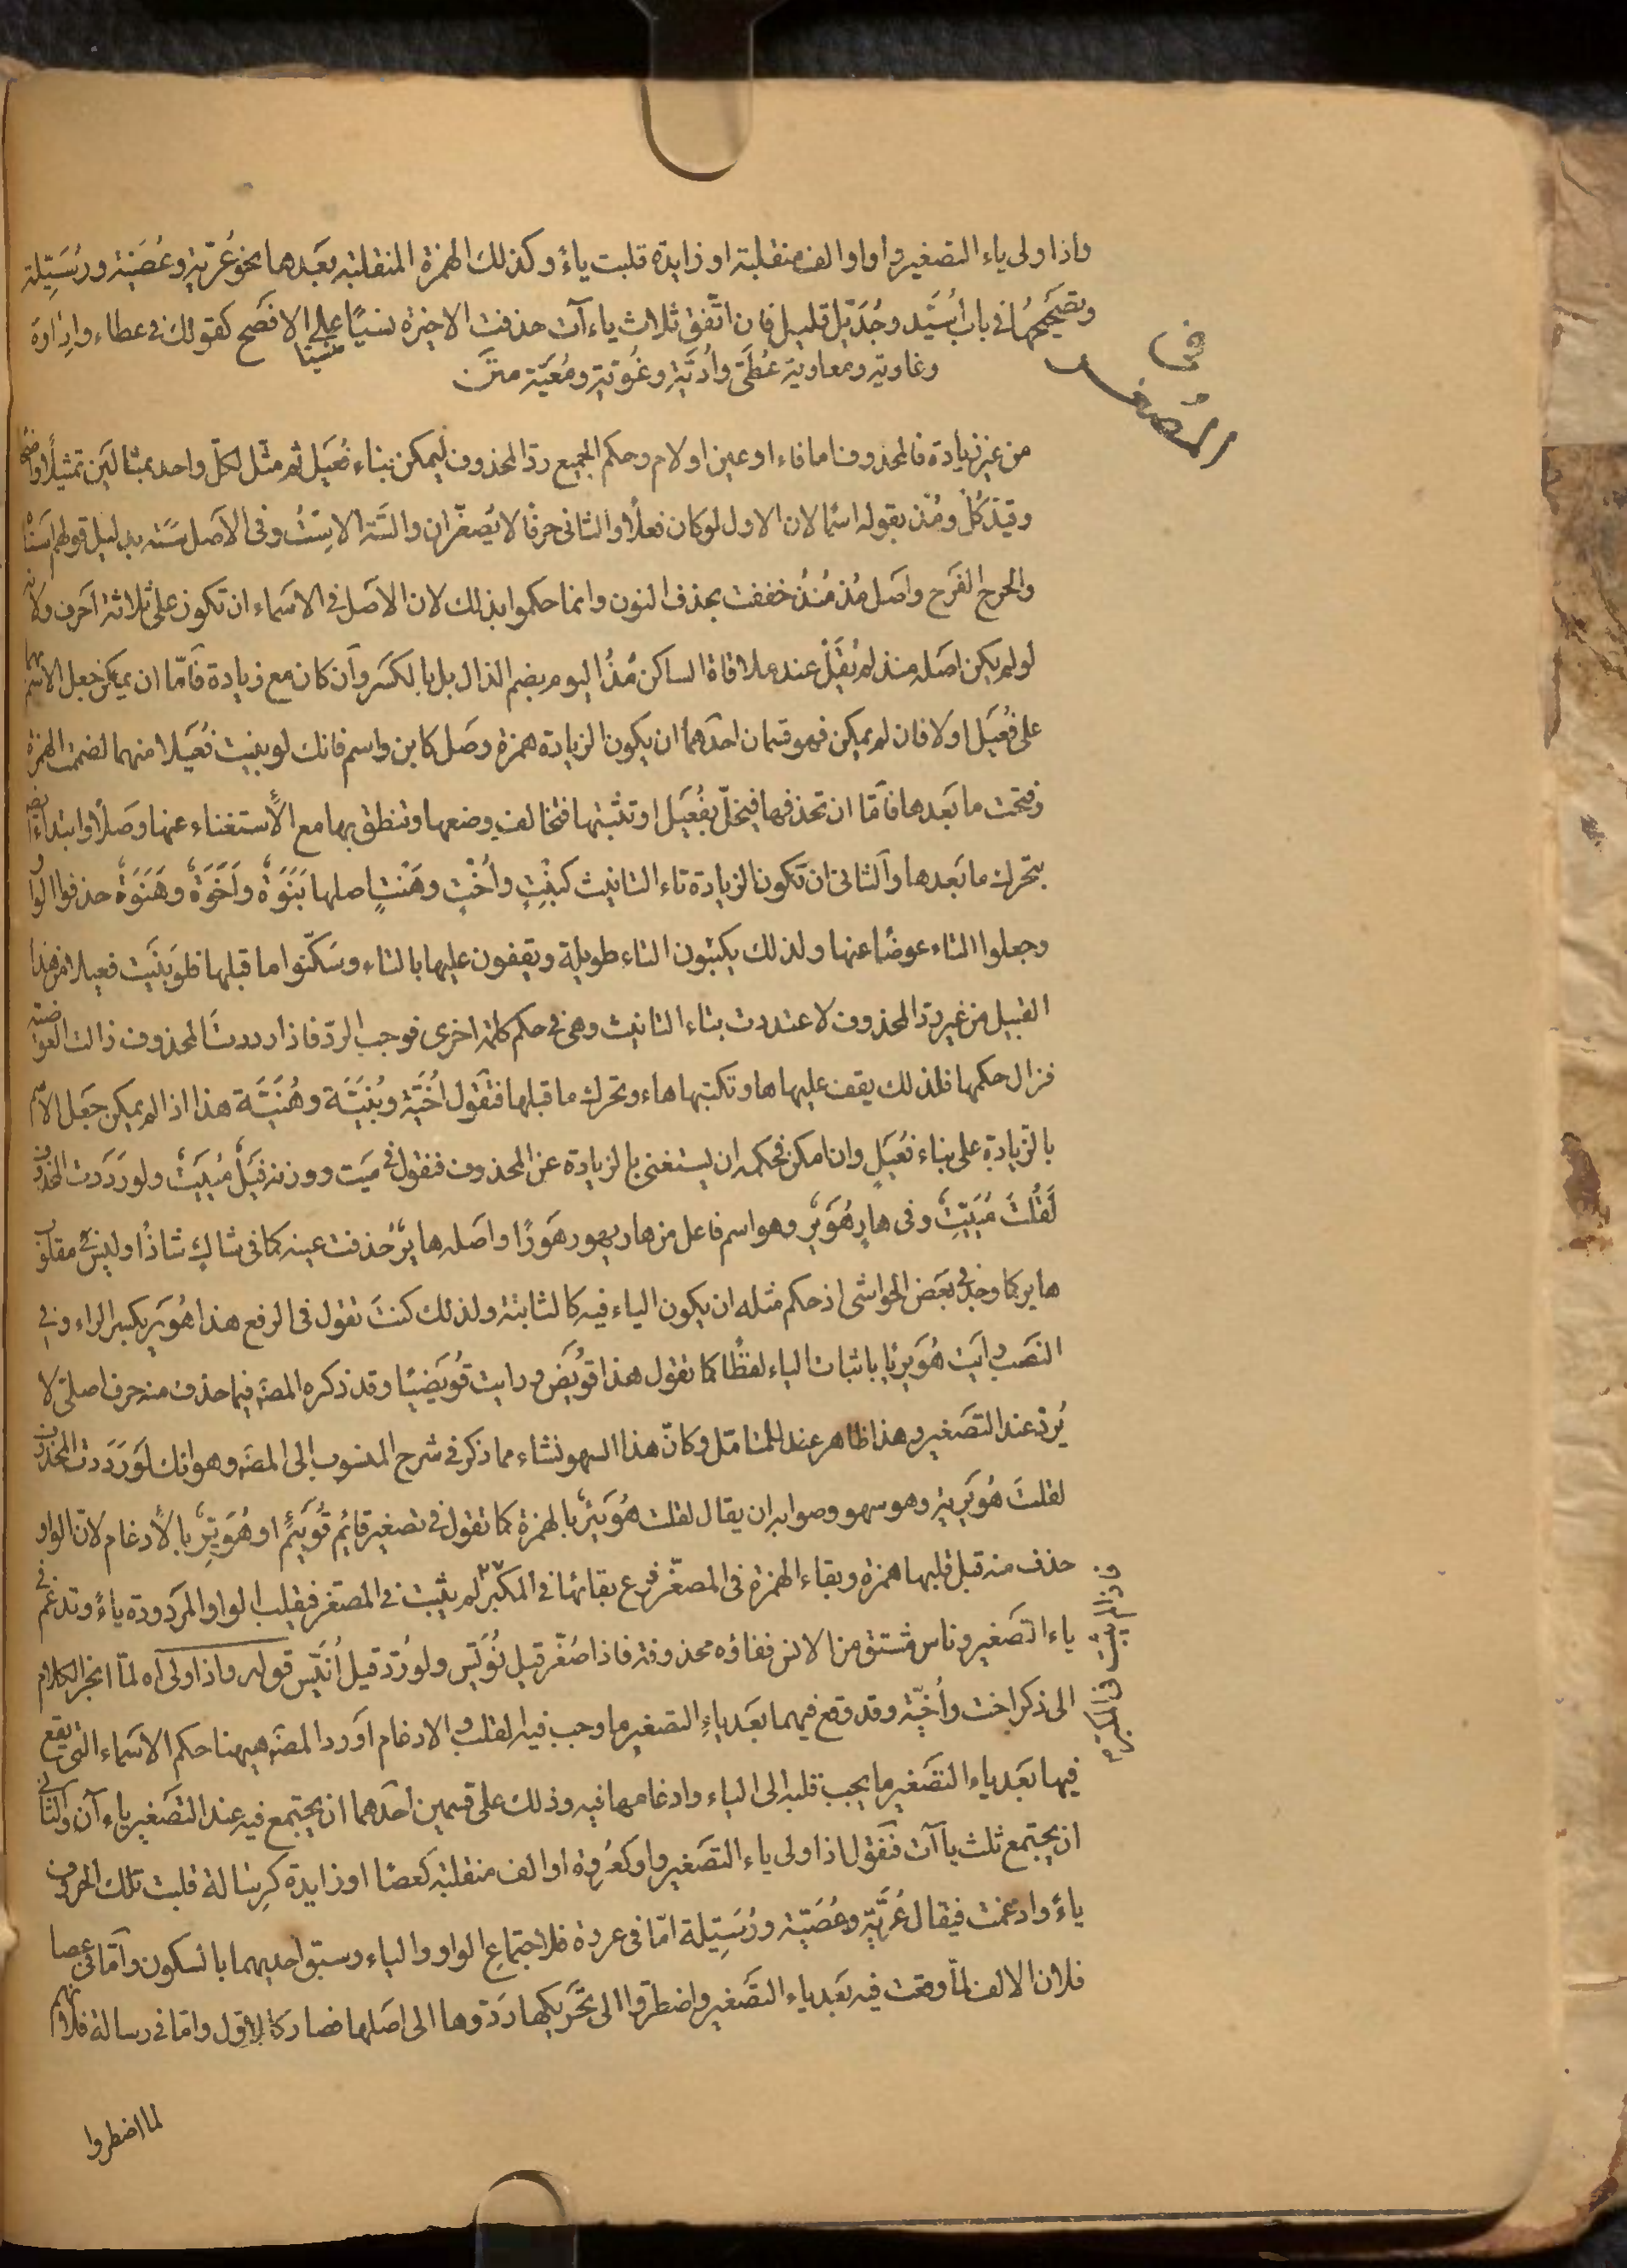 واذا ولى ياء التصغير واو او الف منقلبة او زايدة قلبت ياءً وكذلك الهمزة المنقلبة بعَدها نحو عُرَيّة وعُصَيّة ورُسَيِّلة
وتصَحيحُها فى باب اُسَيِّد وجُدَيِّل قليل فان اتّفق ثلاث ياءآت حذفت الاخيرة نسيًا على الافصَح كقولك فى عطاء واِدٰاوة
منسيّا
وغاوية ومعاوية عُطَىّ واُدَيّة وغُوَيّة ومُعَيّة متن
فى
المصغر
من غير زيادة فالمحذوف اما فاء او عين او لام وحكم الجميع ردّ المحذوف ليمكن بناء فُعَيل ثم مثّل لكلّ واحد بمثالين تمثيلًا واضحًا
وقيّد كُلْ ومُذ بقوله اسمًا لان الاول لو كان فعلًا والثانى حرفًا لا يُصغّران والسَّه الاِسْتُ وفى الاَصل سَتَه بدليل قولهم اَسْتٰاه
والحرح الفَرج واصَل مُذ مُنذُ خففت بحذف النون وانما حكموا بذلك لان الاصَل فى الاسَماء ان تكون على ثلاثة اَحرف ولانّه
لو لم يكن اصَله منذ لم يُقَلْ عند ملاقاة الساكن مُذُ اليوم بضم الذال بل بالكسَر وَان كان مع زيادة فَامّا ان يمكن جعل الاسم بها
على فُعَيل اولا فان لم يمكن فهو قسمان احَدهما ان يكون الزيادة همزة وصَل كابن واسم فانك لو بنيت فُعَيلا منهما لضممت الهمزة
وفتحت ما بَعدها فَامّا ان تحذفها فيختلّ بفُعَيل او تثبتها فتخالف وضعها وتنطق بها مع الاستغناء عنها وصَلًا وابتداءً
بتحرك ما بَعدها وَالثانى ان تكون الزيادة تاء التانيث كبِنْتٍ واُخْتٍ وهَنْتٍ اصلها بَنَوَةٌ واَخَوَةٌ وهَنَوَةٌ حذفوا الواو
وجعلوا التاء عوضًا عنها ولذلك يكتبون التاء طويلة ويقفون عليها بالتاء وسَكّنوا ما قبلها فلو بنَيت فعيلا من هذا
القبيل من غير ردّ المحذوف لاعتددت بتاء التانيث وهى فى حكم كلمة اخرى فوجب الردّ فاذا رددتَ المحذوف زالت العوضية
فزال حكمها فلذلك يقف عليها ها وتكتبها هاء وتحرك ما قبلها فتقول اُخَيّة وبُنَيَّة وهُنَيَّة هذا اذا لم يمكن جعَل الاسم
بالزيادة على بناء فُعَيلٍ وان امكن فحكمه ان يستغنى بالزيادة عن المحذوف فتقول فى مَيت ووزنه فَيْلٌ مُيَيْتٌ ولو رَدَدت المحذوف
لَقُلتَ مُيَيِّتٌ وفى هارٍ هُوَيْرٌ وهو اسم فاعل من هار يهور هَورًا واصَله هايرٌ حُذفت عينه كما فى شاكٍ شاذًا وليس مقلوب
هاير كما وجد فى بَعض الحواشى اذ حكم مثله ان يكون الياء فيه كالثابتة ولذلك كنتَ تقول فى الرفع هذا هُوَيرٍ بكسر الراء وفى
النصَب رايت هُوَيريًا باثبات الياء لفظًا كما تقول هذا قوَيضٍ ورايت قُوَيضيًا وقد ذكره المصَ فيما حذف منه حرف اصلىّ لا
يُردّ عند التصَغير وهذا ظاهر عند المتامّل وكانّ هذا السهو نشاء مما ذكر فى شرح المنسوب الى المصَ وهو انك لو رَدَدت المحذوف
لقلتَ هُوَيْرِية وهو سهو وصوابه ان يقال لقلت هُوَيئِرٌ بالهمزة كما تقول فى تصغير قايُم قُوَيئِم او هُوَيِّرٌ بالادغام لانّ الواو
حذف منه قبل قلبها همزة وبقاء الهمزة فى المصغّر فرع بقائها فى المكبّر لم يثبت فى المصغر فيقلب الواو المرَدودة ياءً وتدغم فى
ياء التصَغير وناس مشتق من الانس ففاؤه محذوفة فاذا صُغّر قيل نُوَيْس ولو رُدّ قيل اُنَيِّس قوله واذا ولى اه لمّا انجر الكلام
الى ذكر اخت واُخَيّة وقد وقع فيهما بَعد ياء التصغير ما وجب فيه القلب والادغام اَورد المصَ ههنا حكم الاسَماء التى يقع
فيها بَعد ياء التصَغير ما يجب قلبه الى الياء وادغامها فيه وذلك على قسمين احَدهما ان يجتمع فيه عند التصَغير ياءآن وَالثانى
ان يجتمع ثلث ياآت فَنقول اذا ولى ياء التصَغير واو كعُروة او الف منقلبة كعصًا او زايدة كرِسٰالة قلبت تلك الحروف
ياءً وادغمت فيقال عُرَيَّة وعُصَيّة ورُسَيِّلة امّا فى عروة فلاجتماع الواو والياء وسبق احديهما بالسكون وَامّا فى عصا
فلان الالف لمّا وقعت فيه بَعد ياء التصَغير واضطرّوا الى تحَريكها رَدّوها الى اصَلها فصار كالاول وامّا فى رسالة فلانهم
لما اضطروا